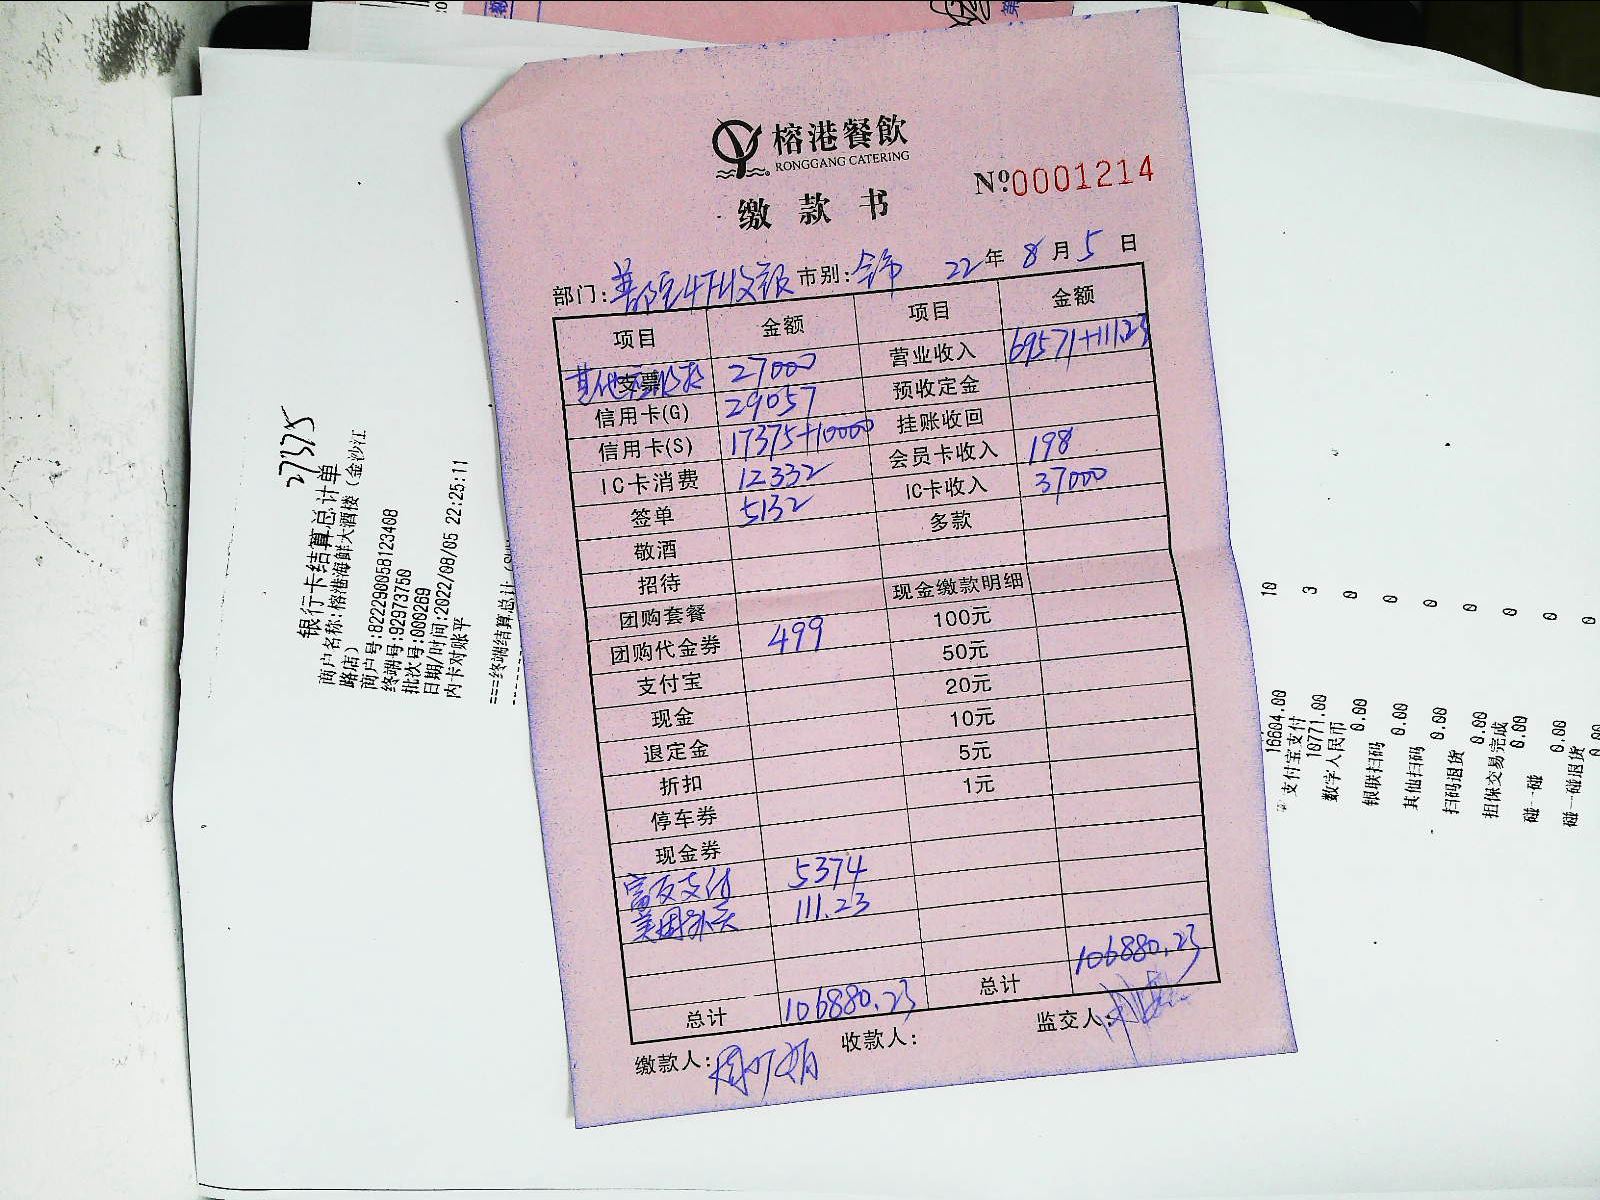 榕港餐飲
RONGGANG CATERING
缴款书
№0001214
部门: 市别:全市 22年8月5日
项目 金额 项目 金额
27000 营业收入 69571+111.23
信用卡(G) 29057 预收定金
信用卡(S) 17375+10000 挂账收回
IC卡消费 12332 会员卡收入 198
签单 5132 IC卡收入 37000
敬酒 多款
招待 现金缴款明细
团购套餐 100元
团购代金券 499 50元
支付宝 20元
现金 10元
退定金 5元
折扣 1元
停车券
现金券
富友支付 5374
美团外卖 111.23
总计 106880.23 总计 106880.23
缴款人: 收款人: 监交人:
27375
银行卡结算总计单
商户名称:榕港海鲜大酒楼(金沙江
路店)
商户号:822290058123408
终端号:92973750
批次号:000269
日期/时间:2022/08/05 22:25:11
内卡对账平
===终端结算总计
10
16604.00
支付宝支付
3
10771.00
数字人民币
0
0.00
银联扫码
0
0.00
其他扫码
0
0.00
扫码退货
0
0.00
担保交易完成
0
0.00
碰一碰
0
0.00
碰一碰退货
0
0.00